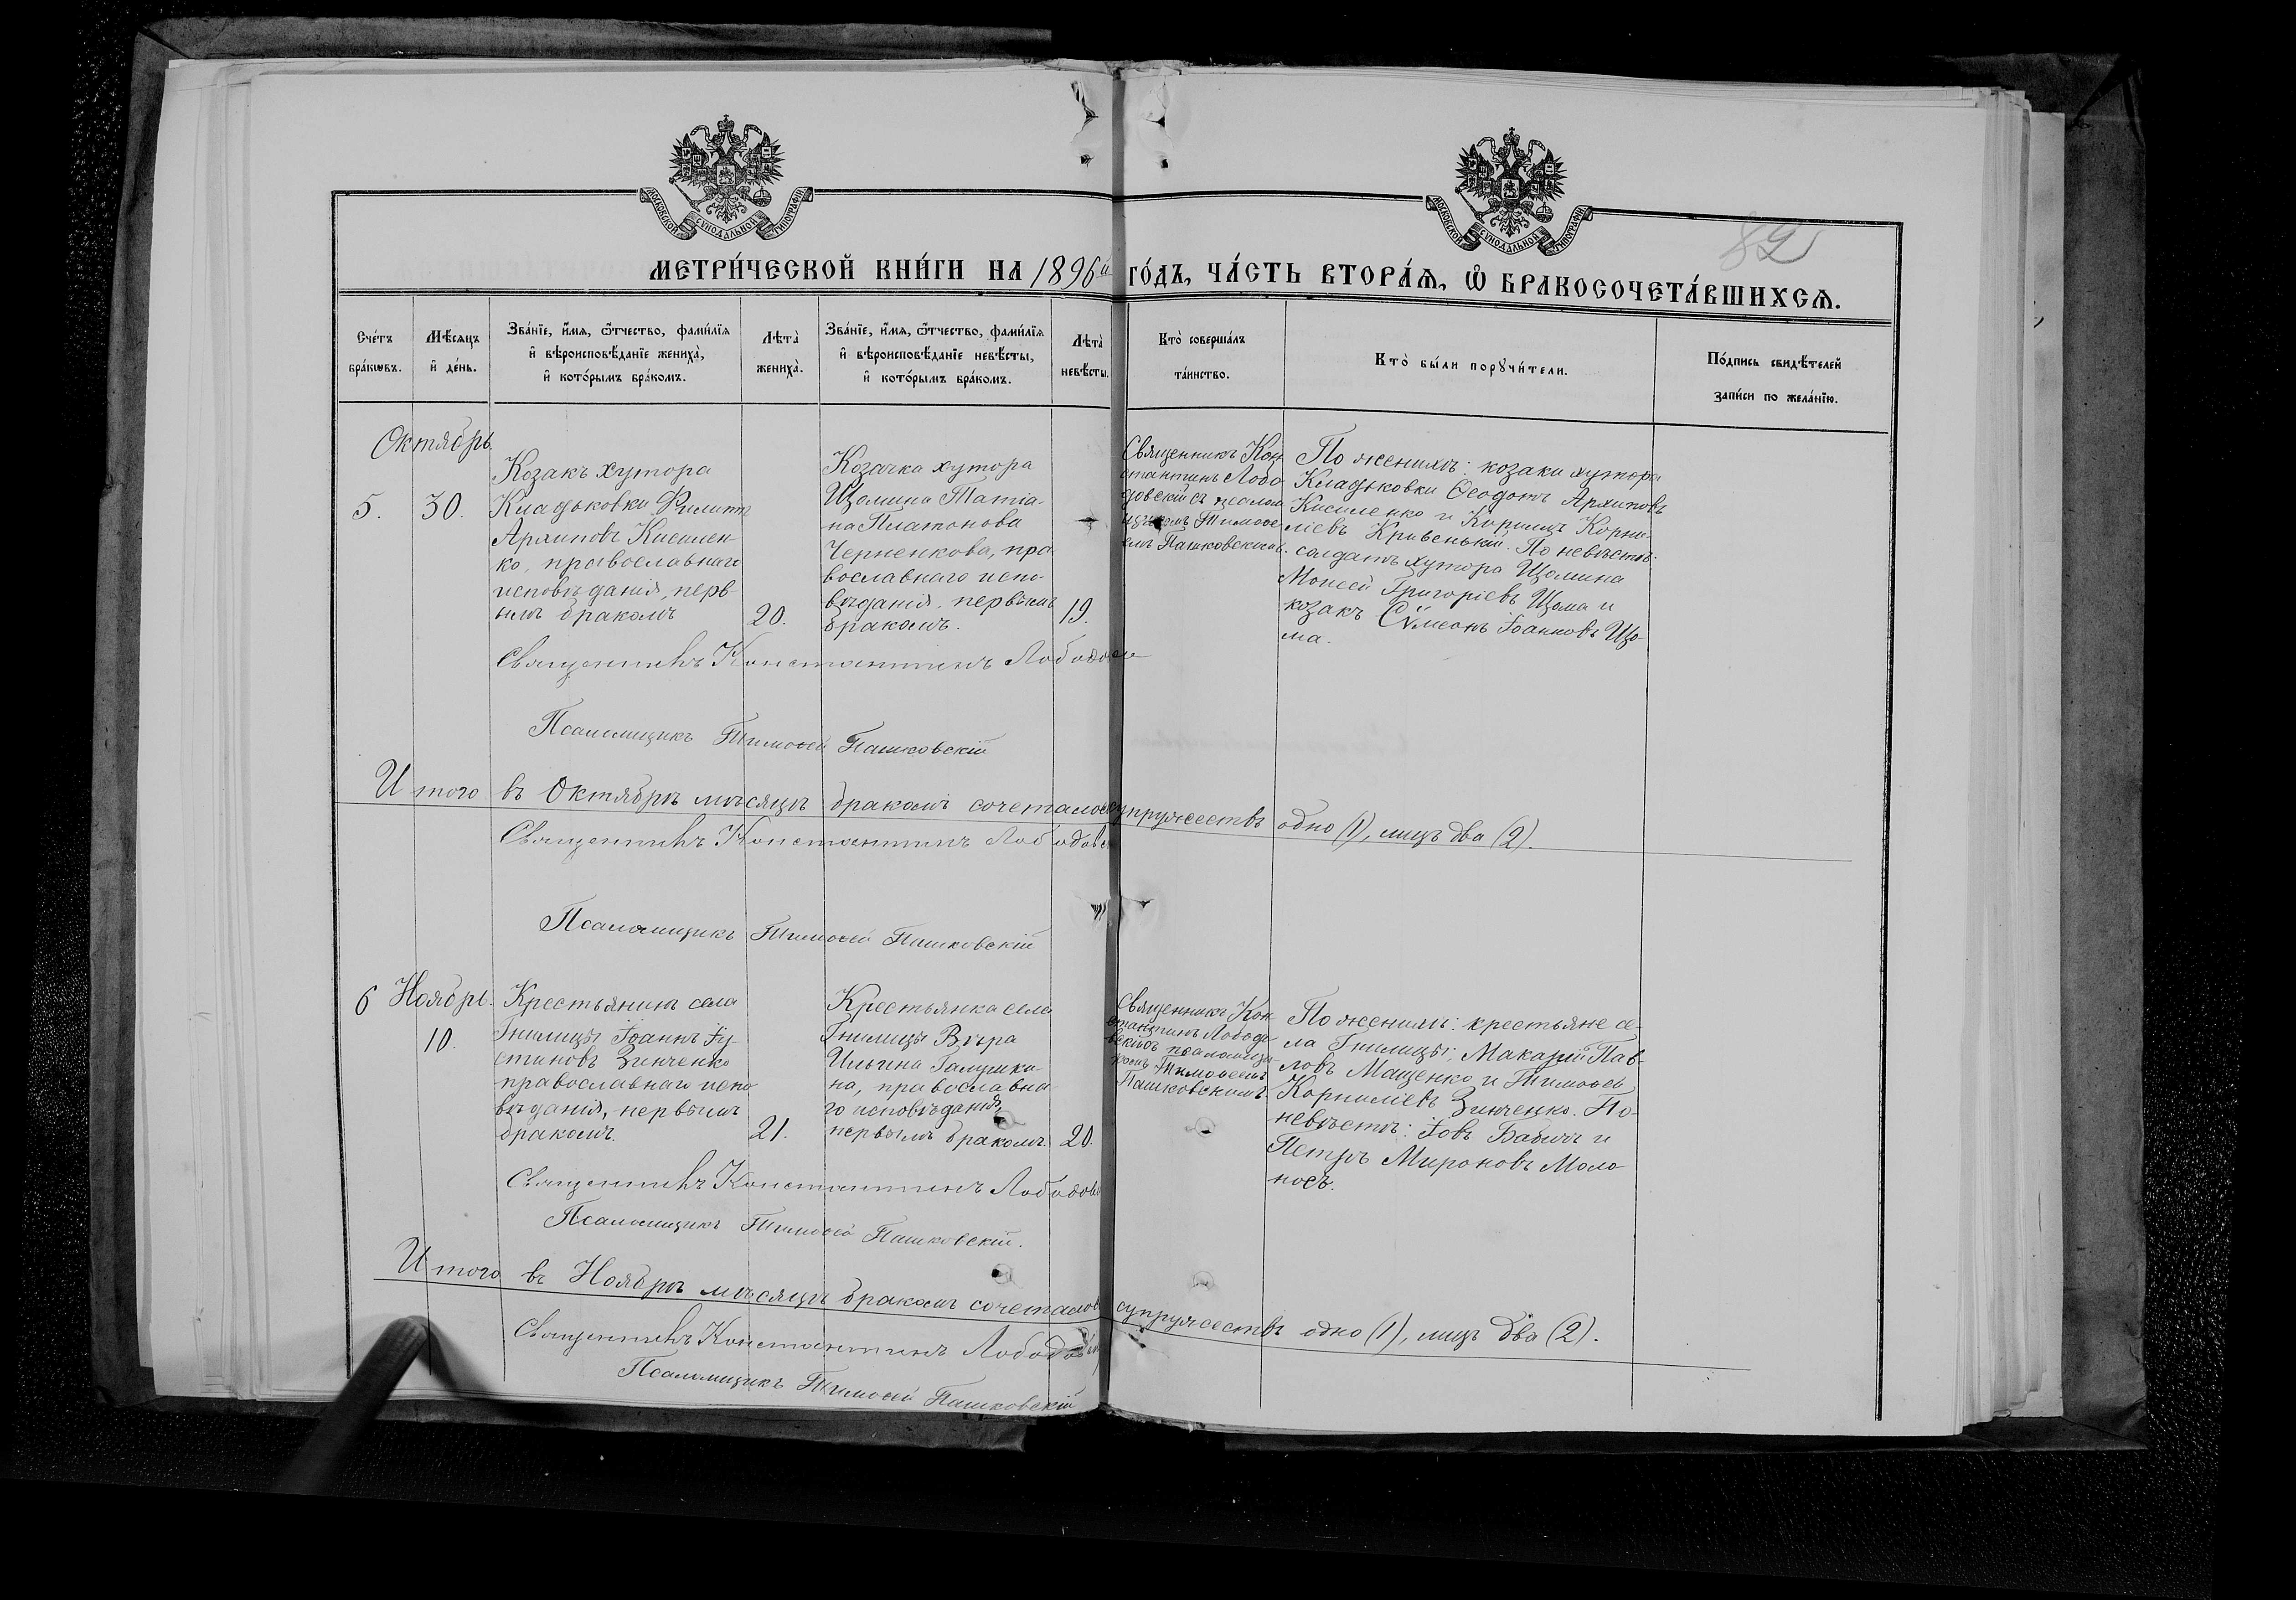 МОСКОВСКОЙ СѴНОДАЛЬНОЙ ТИПОГРАФІИ
МОСКОВСКОЙ СѴНОДАЛЬНОЙ ТИПОГРАФІИ
82
МЕТРИ́ЧЕСКОЙ КНИ́ГИ НА 1896й ГО́ДЪ, ЧА́СТЬ ВТОРА́Я, Ѡ БРАКОСОЧЕТА́ВШИХСѦ.
Сче́тъ
бра́кѡвъ.
Мѣ́сяцъ
и̂ де́нь.
Зва́нїе, и́мѧ, ѻ҆́тчество, фами́лїѧ
и̂ вѣроисповѣ́данїе жениха̀,
и̂ кото́рымъ бра́комъ.
Лѣта̀
жениха̀.
Зва́нїе, и́мѧ, ѻ҆́тчество, фами́лїѧ
и̂ вѣроисповѣ́данїе невѣ́сты,
и̂ кото́рымъ бра́комъ.
Лѣта̀
невѣ́сты.
Кто̀ соверша́лъ
та́инство.
Кто̀ бы́ли порꙋчи́тели.
По́дпись свидѣ́телей
запи́си по жела́нїю.
Октябрь.
5.
30.
Козакъ хутора
Кладьковки Филиппъ
Архиповъ Кисилен-
ко, православнаго
исповѣданія, перв-
ымъ бракомъ
20.
Козачка хутора
Щомина Татіа-
на Платонова
Черненкова, пра
вославнаго испо-
вѣданія, первымъ
бракомъ.
19.
Священникъ Кон
стантинъ Лобо-
довскій съ псалом
щикомъ Тимоѳе-
емъ Пашковскимъ.
По женихѣ: козаки хутора
Кладьковки Ѳеодотъ Архиповъ
Кисиленко и Корнилъ Корни-
ліевъ Кривенькій. По невѣстѣ:
солдатъ хутора Щомина
Моисей Григоріевъ Щома и
козакъ Сѵмеонъ Іоанновъ Що-
ма.
Священникъ Константинъ Лободовск
Псаломщикъ Тимоѳей Пашковскій
Итого въ Октябрѣ мѣсяцѣ бракомъ сочеталось супружествъ одно (1), лицъ два (2).
Священникъ Константинъ Лободовск
Псаломщикъ Тимоѳей Пашковскій
6
Ноябрь.
10.
Крестьянинъ села
Гнилицы Іоаннъ Іу-
стиновъ Зинченко
православнаго испо
вѣданія, первымъ
бракомъ.
21.
Крестьянка села
Гнилицы Вѣра
Ильина Галушки-
на, православна
го исповѣданія,
первымъ бракомъ.
20.
Священникъ Кон
стантинъ Лободо
вскій съ псаломщи-
комъ Тимоѳеемъ
Пашковскимъ.
По женихѣ: крестьяне се-
ла Гнилицы: Макарій Пав-
ловъ Мащенко и Тимоѳей
Корниліевъ Зинченко. По
невѣстѣ: Іовъ Бабичъ и
Петръ Мироновъ Моло-
носъ.
Священникъ Константинъ Лободовс
Псаломщикъ Тимоѳей Пашковскій.
Итого въ Ноябрѣ мѣсяцѣ бракомъ сочеталось супружествъ одно (1), лицъ два (2).
Священникъ Константинъ Лободовск
Псаломщикъ Тимоѳей Пашковскій